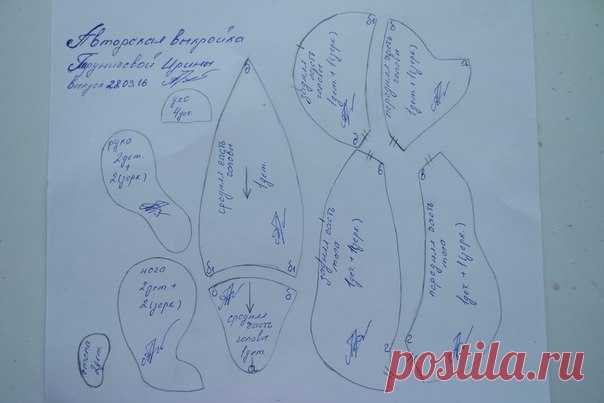 Авторская выкройка
Трунтаевой Ирины
Выпуск 28.03.16
ухо
4 дет.
рука
2 дет.
+
2 (зерк)
нога
2 дет +
2 (зерк)
2 дет.
средняя часть
головы
1 дет.
средняя
часть
головы
1 дет.
задняя
часть
головы
1 дет + 1 (зерк)
передняя часть
головы
1 дет + 1 (зерк)
задняя часть
тела
1 дет + 1 (зерк)
передняя часть
тела
1 дет + 1 (зерк)
postila.ru